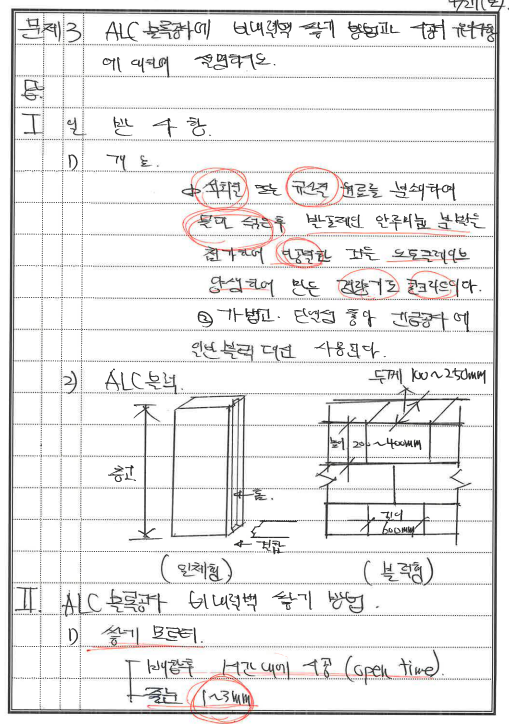 문제 3. ALC 블록공사에 비내력벽 쌓기 방법과 시공시 유의사항
에 대하여 설명하시오.
답)
I 일 반 사 항
1) 개 요
① 석회질 또는 규산질 원료를 분쇄하여
물과 섞은후 발포제인 알루미늄 분말을
첨가하여 다공질화 고온 오토클레이브
양생하여 만든 경량기포 콘크리트이다.
② 가볍고 단열성 좋아 건축공사에
일반블럭 대신 사용된다.
2) ALC 블럭.
두께 100~250mm
높이 200~400mm
층고
홈.
길이
600mm
(일체형)
(블럭형)
II. ALC 블록공사 비내력벽 쌓기 방법.
1) 쌓기 모르터.
시간내에 시공 (open time).
줄눈 1~3mm